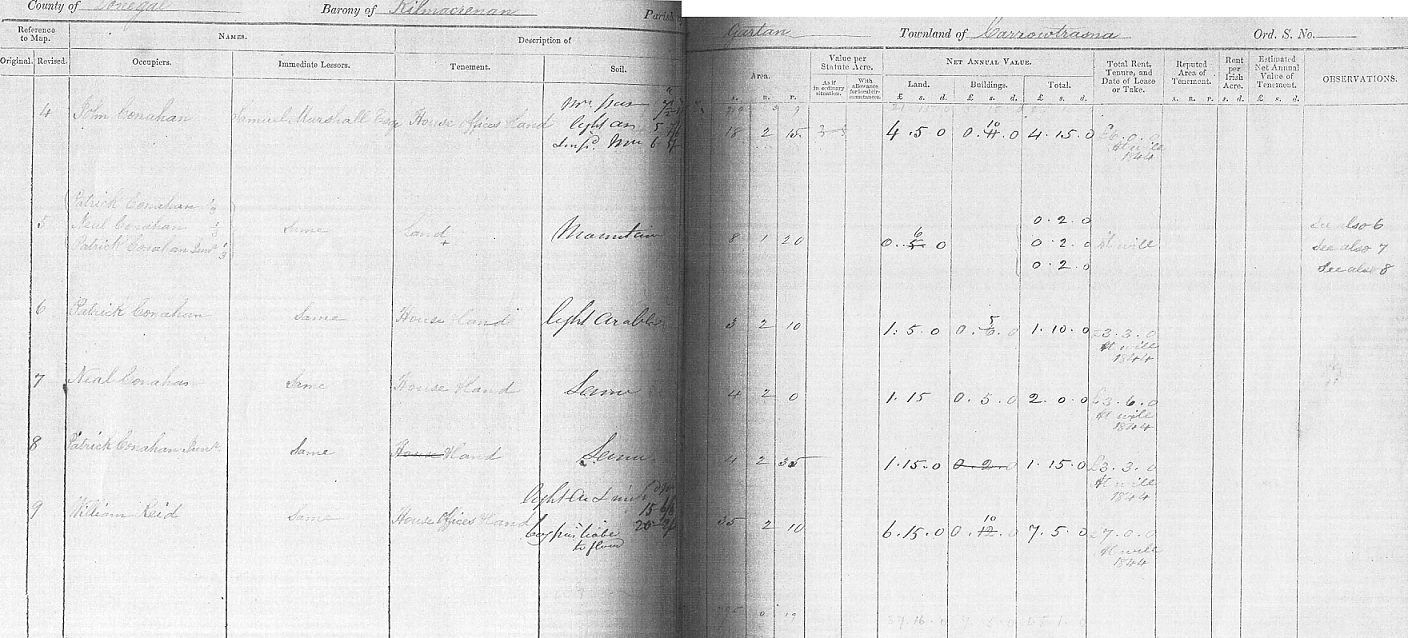 County of Donegal Barony of Kilmacrenan Parish
Gartan Townland of Carrowtrasna Ord. S. No.
Reference to Map.
Original. Revised.
NAMES.
Occupiers. Immediate Lessors.
Description of
Tenement. Soil.
Area.
A. R. P.
Value per Statute Acre.
As if in ordinary situation. With allowance for local circumstances.
NET ANNUAL VALUE.
Land. Buildings. Total.
£ s. d. £ s. d. £ s. d.
Total Rent, Tenure, and Date of Lease or Take.
Reputed Area of Tenement.
A. R. P.
Rent per Irish Acre.
s. d.
Estimated Net Annual Value of Tenement.
£ s. d.
OBSERVATIONS.
4 John Conahan Samuel Marshall Esqr House Offices & Land
18 2 15 4 . 5 0 0 . 10 . 0 4 . 15 . 0 £6 . 0 . 0
At will
1844
Patrick Conahan 1/3
5 Neal Conahan 1/3 Same Land Mountain 8 1 20 0 . 6 0 At will
Patrick Conahan Junr 1/3
0 . 2 . 0 See also 6
0 . 2 . 0 See also 7
0 . 2 . 0 See also 8
6 Patrick Conahan Same House & Land light arable 3 2 10 1 . 5 . 0 0 . 5 . 0 1 . 10 . 0 £3 . 3 . 0
At will
1844
7 Neal Conahan Same House & Land Same 4 2 0 1 . 15 0 . 5 . 0 2 . 0 . 0 £3 . 6 . 0
At will
1844
8 Patrick Conahan Junr Same House & Land Same 4 2 35 1 . 15 . 0 0 . 2 . 0 1 . 15 . 0 £3 . 3 . 0
At will
1844
9 William Reid Same House Offices & Land
35 2 10 6 . 15 . 0 0 . 10 . 0 7 . 5 . 0 £7 . 0 . 0
At will
1844